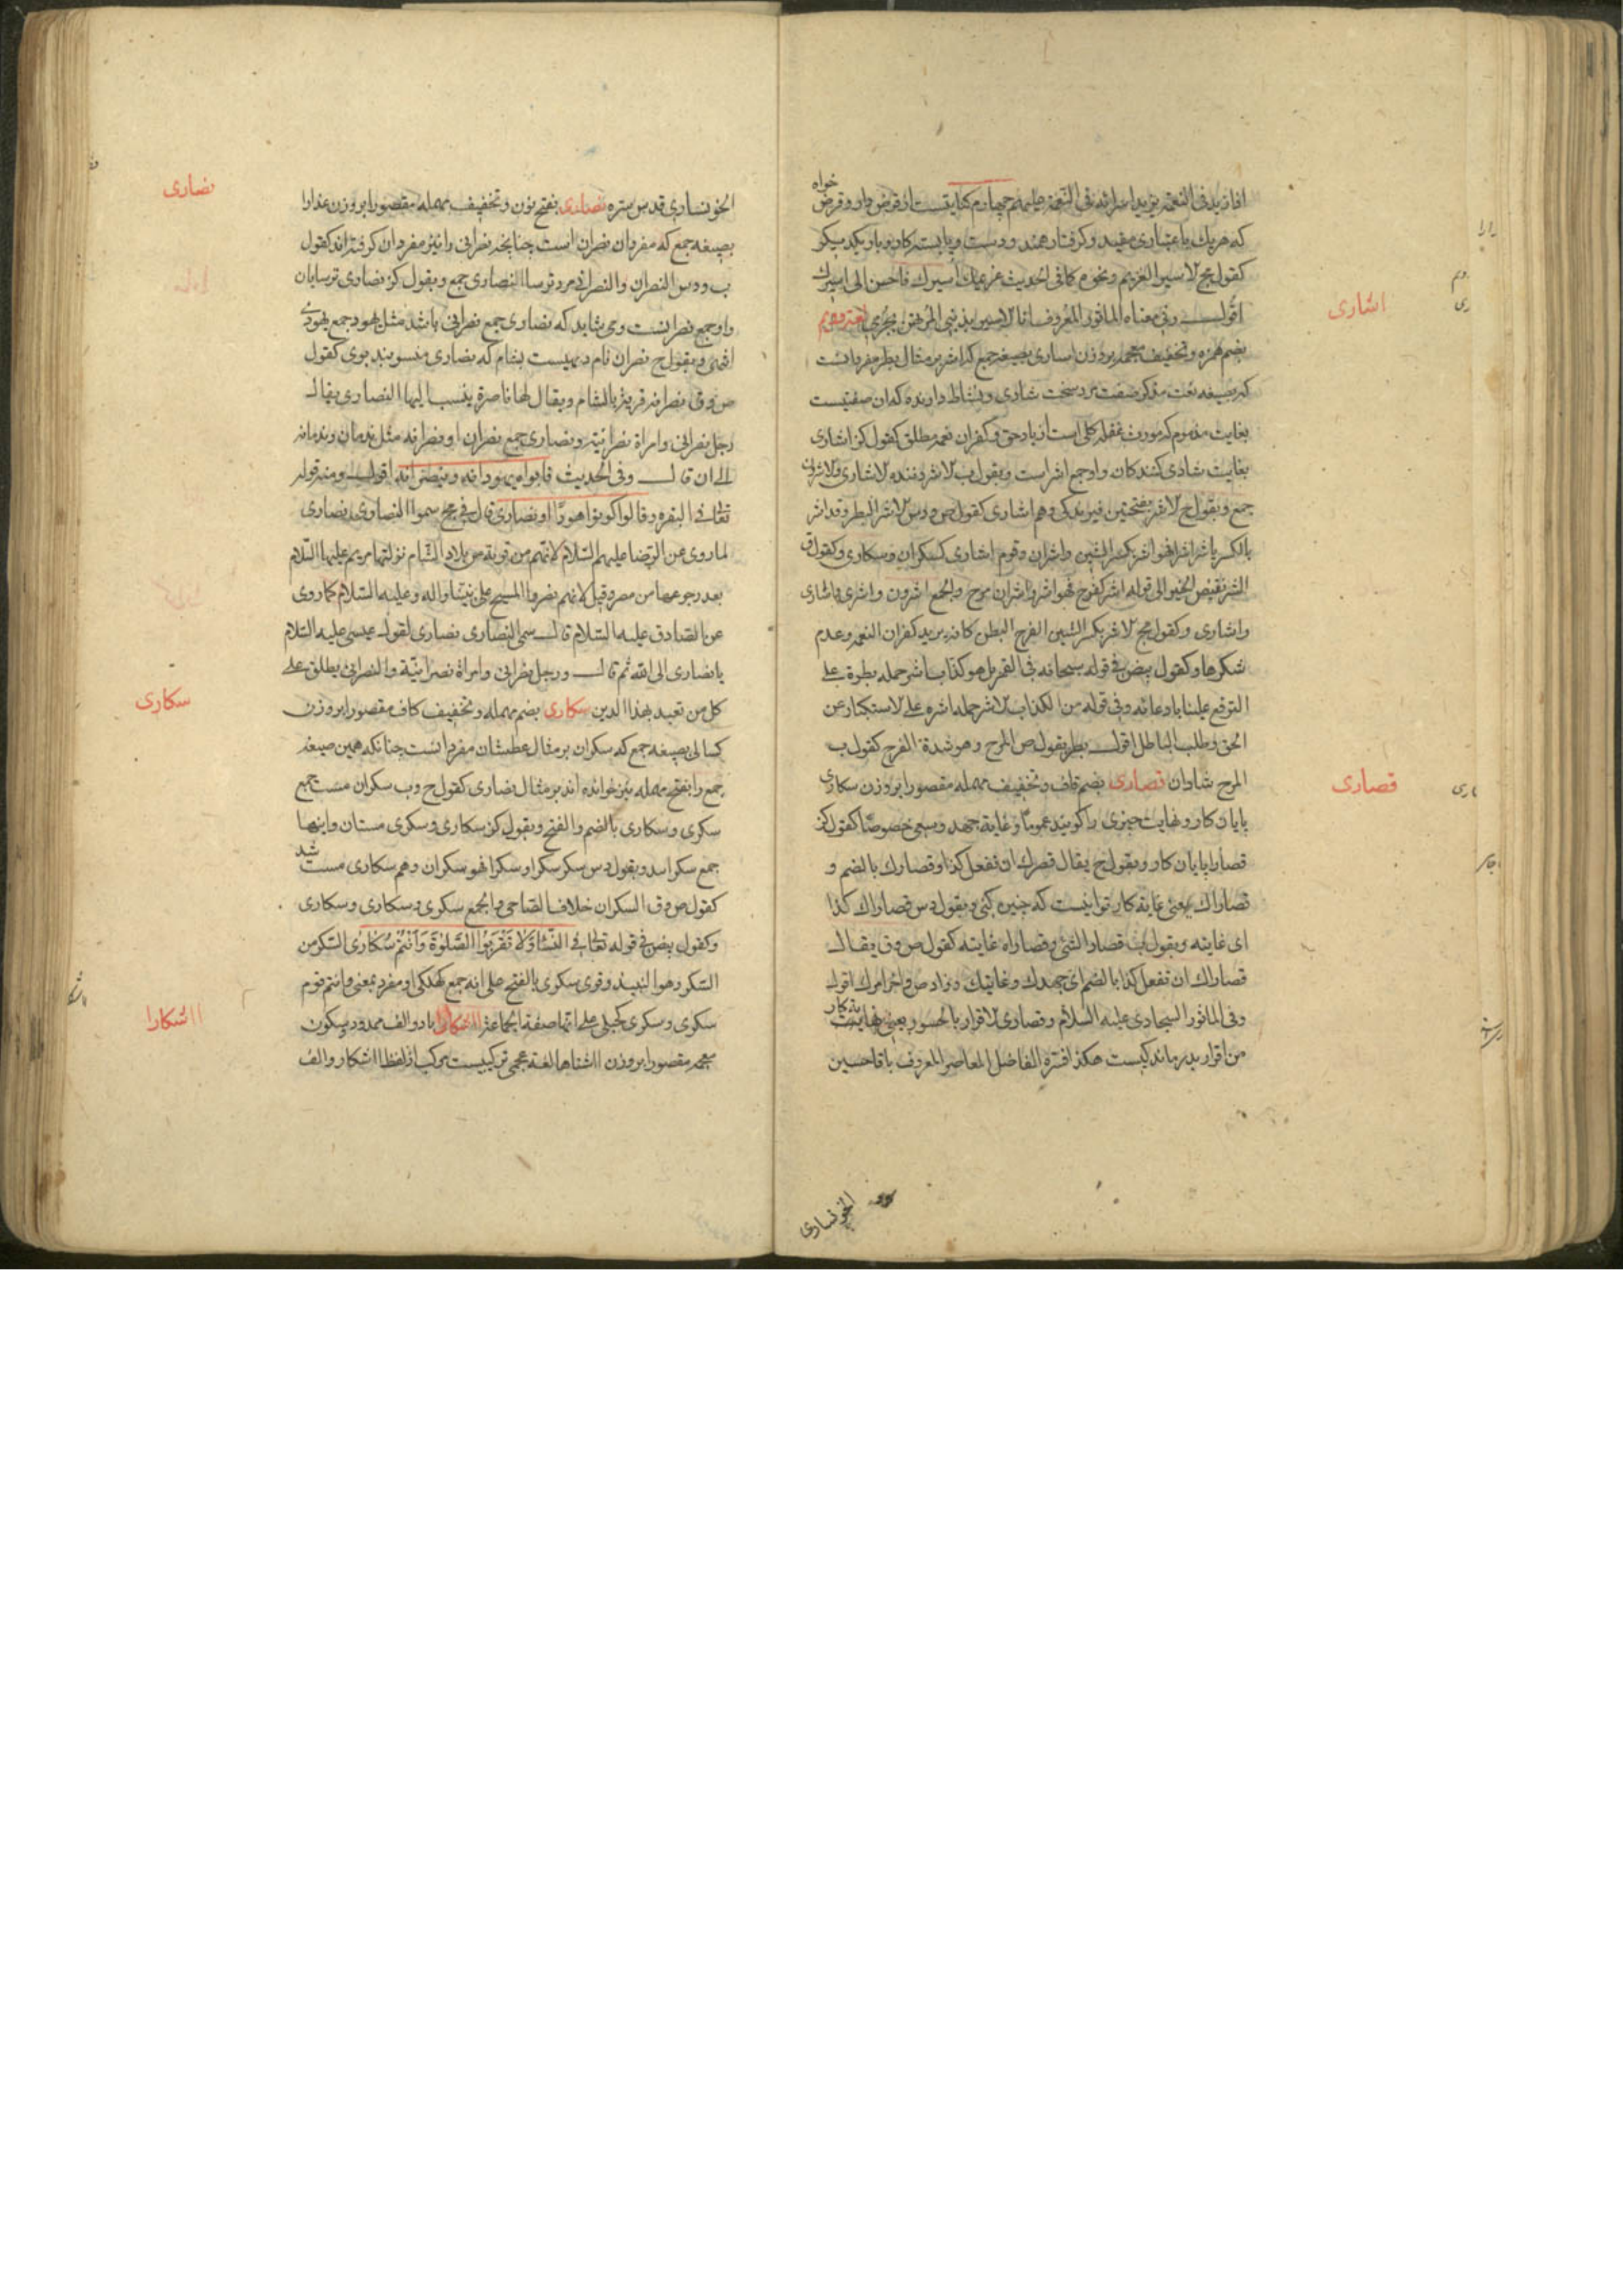 خواه
که هریک باعتباری مقید وکرفتارهمند
کقول مج الاسیر الغریم ونحوه کما فی الحدیث غریمك اسیرك فاحسن الی اسیرك
اشاری
اقول وفی معناه الماثور المعروف انا الاسیر بذنبی المرتهن بجرمی
بضم همزه وتخفیف معجمه بروزن اساری بصیغه جمع که اشر بر مثال بطر مفردانست
که بصیغه نعت مذکر صفت مرد سخت شادی ونشاط دارنده که ان صفتیست
بغایت مذموم که مورث غفله کلی است از یاد حق وکفران نعمه مطلق کقول کنز اشاری
بغایت شادی کنندکان واو جمع اشر است وبقول ب الاشر دننده الاشاری
جمع وبقول ح الاشر بفتحتین فیرندکی وهم اشاری کقول ص ودس الاشر البطر وقد اشر
بالکسر یاشر اشرا فهو اشر بکسر الشین واشران وقوم اشاری کسکران وسکاری وکقول ق
الشر نقیض الخیر الی قوله اشر کفرح فهو اشر واشران مرح والجمع اشرون واشری
واشاری وکقول مج الاشر بکسر الشین الفرح البطر کانه یرید کفران النعمه وعدم
شکرها وکقول بیض فی قوله سبحانه فی القمر بل هو کذاب اشر حمله بطره علی
الترفع علینا بادعائه وفی قوله من الکذاب الاشر حمله اشره علی الاستکبار عن
الحق وطلب الباطل اقول بطر بقول ص المرح وهو شدة الفرح کقول ب
قصاری
المرح شادان قصاری بضم قاف وتخفیف مهمله مقصورا بروزن سکاری
پایان کار ونهایت چیزی را کویند عموما وغایة جهد وسعی خصوصا کقول کنز
قصارا پایان کار وبقول ح یقال قصرك ان تفعل کذا وقصارك بالضم و
قصاراك یعنی غایة کار تو اینست که چنین کنی وبقول دس قصاراك کذا
ای غایته وبقول ب قصار الشئ وقصاراه غایته کقول ص وق یقال
قصاراك ان تفعل کذا بالضم ای جهدك وغایتك وزاد ص واخر امرك اقول
وفی الماثور السجادی علیه السلام وقصاری الاقرار بالحسور یعنی نهایت کار
من اقرار بدرماندکیست هکذا فسره الفاضل المعاصر المعروف باقا حسین
الخونساری
نصاری
الخونساری قدس سره نصاری بفتح نون وتخفیف مهمله مقصورا بروزن عذارا
بصیغه جمع که مفردان نصران است چنانچه نصرانی را نیز مفردان کرفته اند کقول
ب ودس النصران والنصرانی مرد ترسا النصاری جمع وبقول کنز نصاری ترسایان
واو جمع نصرانست ومی شاید که نصاری جمع نصرانی باشد مثل یهود جمع یهودی
انتهی وبقول ح نصران نام دیهیست بشام که نصاری منسوبند بوی کقول
ص وق نصرانه قریة بالشام ویقال لها ناصرة ینسب الیها النصاری یقال
رجل نصرانی وامراة نصرانیة ونصاری جمع نصران او نصرانه مثل ندمان وندمانه
الی ان قال وفی الحدیث فابواه یهودانه وینصرانه اقول ومنه قوله
تعالی فی البقره وقالوا کونوا هودا او نصاری قال فی مج سموا النصاری نصاری
لما روی عن الرضا علیهم السلام لانهم من قریة من بلاد الشام نزلتها مریم علیها السلام
بعد رجوعها من مصر وقیل لانهم نصروا المسیح علی نبینا واله وعلیه السلام کما روی
عن الصادق علیه السلام قال سمی النصاری نصاری لقول عیسی علیه السلام
یا نصاری الی الله ثم قال ورجل نصرانی وامراة نصرانیة والنصرانی یطلق علی
سکاری
کل من تعبد بهذا الدین سکاری بضم مهمله وتخفیف کاف مقصورا بروزن
کسالی بصیغه جمع که سکران بر مثال عطشان مفردانست چنانکه همین صیغه
جمع را بفتح مهمله نیز خوانده اند بر مثال نصاری کقول ح وب سکران مست جمع
سکری وسکاری بالضم والفتح وبقول کنز سکاری وسکری مستان واینها
جمع سکراند وبقول دس سکر سکرا وسکرا فهو سکران وهم سکاری مست شد
کقول ص وق السکران خلاف الصاحی والجمع سکری وسکاری وسکاری
وکقول بیض فی قوله تعالی فی النسا وَلا تَقْرَبُوا الصَّلوةَ وَاَنْتُمْ سُکاری السکر من
السکر وهو النبیذ وقری سکری بالفتح علی انه جمع کهلکی او مفرد بمعنی وانتم قوم
ااشکارا
سکری وسکری کحبلی علی انها صفة الجماعة ااشکارا بادو الف ممدود بسکون
معجمه مقصورا بروزن ااشناها لغه عجمی ترکیبیست مرکب از لفظ ااشکار والف